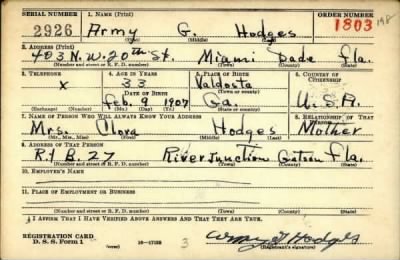 SERIAL NUMBER 1. NAME (Print) ORDER NUMBER
2926 Army G. Hodges 1803 198
(First) (Middle) (Last)
2. ADDRESS (Print)
403 N.W. 20th St. Miami Dade Fla.
(Number and street or R. F. D. number) (Town) (County) (State)
3. TELEPHONE 4. AGE IN YEARS 5. PLACE OF BIRTH 6. COUNTRY OF CITIZENSHIP
x 33 Valdosta
DATE OF BIRTH (Town or county)
Feb. 9 1907 Ga. U.S.A.
(Exchange) (Number) (Mo.) (Day) (Yr.) (State or country)
7. NAME OF PERSON WHO WILL ALWAYS KNOW YOUR ADDRESS 8. RELATIONSHIP OF THAT PERSON
Mrs. Clora Hodges Mother
(Mr., Mrs., Miss) (First) (Middle) (Last)
9. ADDRESS OF THAT PERSON
R.1 B. 27 River Junction Fla.
(Number and street or R. F. D. number) (Town) (County) (State)
10. EMPLOYER'S NAME
11. PLACE OF EMPLOYMENT OR BUSINESS
(Number and street or R. F. D. number) (Town) (County) (State)
I AFFIRM THAT I HAVE VERIFIED ABOVE ANSWERS AND THAT THEY ARE TRUE.
REGISTRATION CARD
D. S. S. Form 1 (over) 16-17105 3 Army G Hodges
(Registrant's signature)